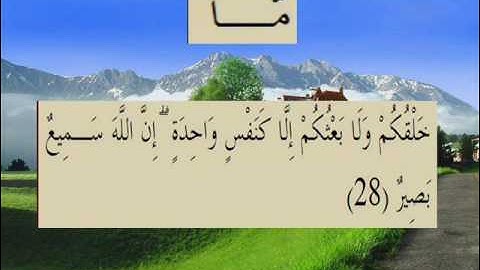 مَّا
خَلْقُكُمْ وَلَا بَعْثُكُمْ إِلَّا كَنَفْسٍ وَاحِدَةٍ ۗ إِنَّ اللَّهَ سَمِيعٌ
بَصِيرٌ (28)